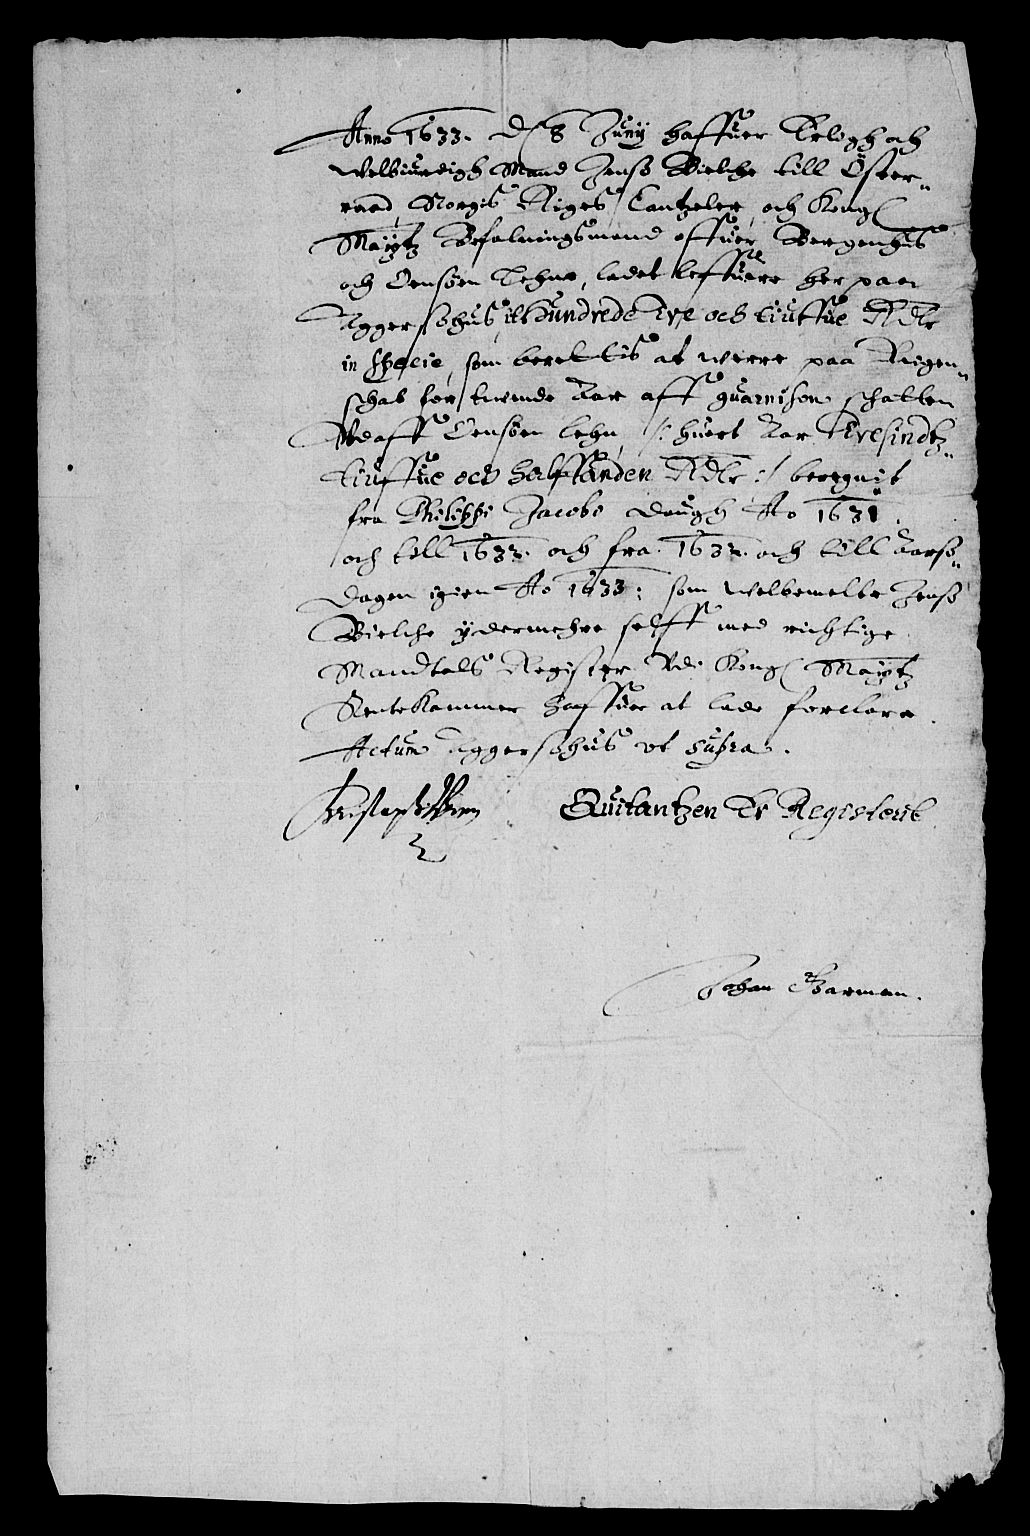 Anno 1633. d 8 Junij haffuer Erligh och
Welbiurdigh Mand Jenss Bielche till Öster-
raad, Norgis Riges Cantzeler, och Kong:
Maytz Befalningsmand offuer Bergenhus
och Onsøen Lehne, ladet leffuere her paa
Aggershus it Hundrede tre och tiuffue Rdlr
in specie, som berettis at werre paa Reigen-
schab for tvende Aar aff guarnison schatten
Vdaff Onsøen lehn /: huert Aar Tresindtz-
tiuffue och halffanden Rdlr :/ beregnit
fra Philippi Jacobi daugh Ao 1631.
och till 1632. och fra 1632. och till Aarss-
dagen igien Ao 1633: som welbemelte Jenss
Bielche ydermehre selff med richtige
Mandtals Register Vdi Kong: Maytz
Rente Kammer haffuer at lade forclare.
Actum Aggershus ut supra.
Quitantzen Er Registerit
Johan Garman.